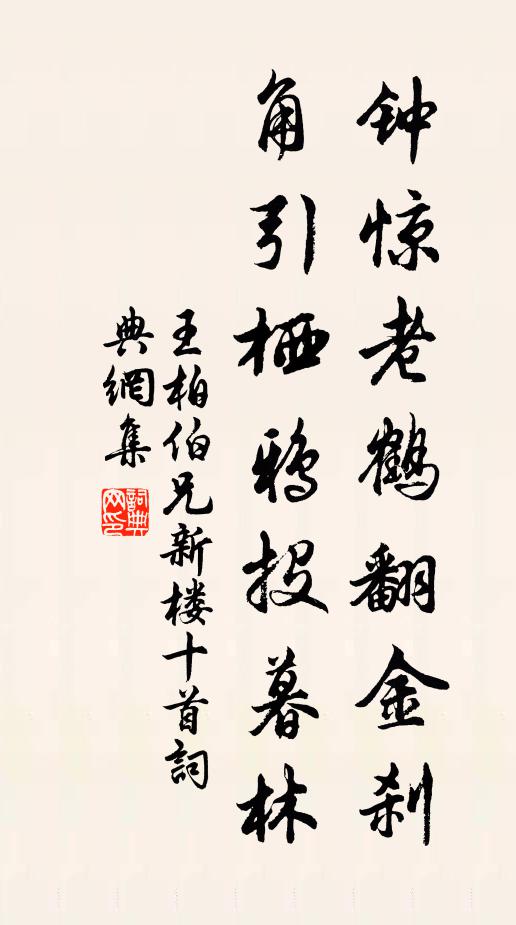 钟惊老鹤翻金刹
角引栖鸦投暮林
王柏伯兄新楼十首詞
典網集
詞典网印